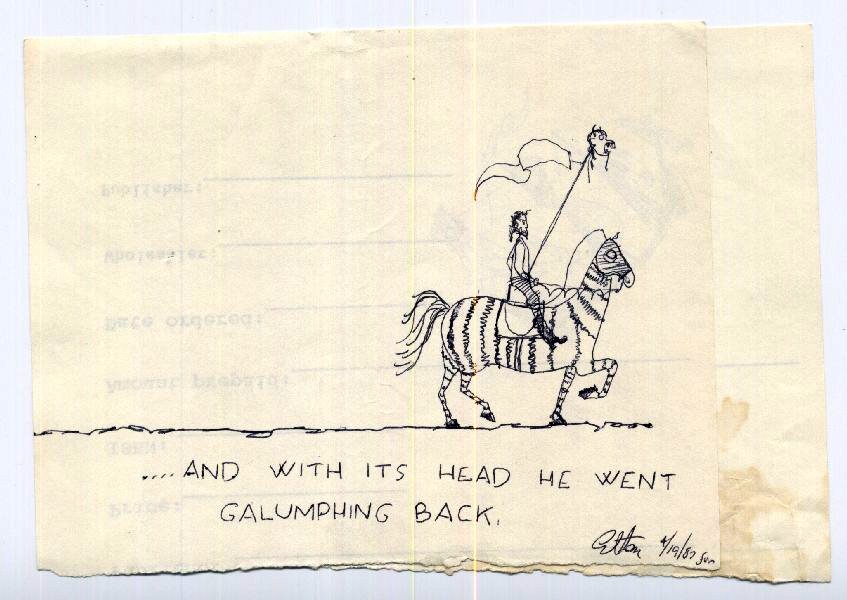 Publisher:
Wholesaler:
Date ordered:
Amount prepaid:
ISBN:
....AND WITH ITS HEAD HE WENT
Price:
GALUMPHING BACK.
4/19/87 Sun